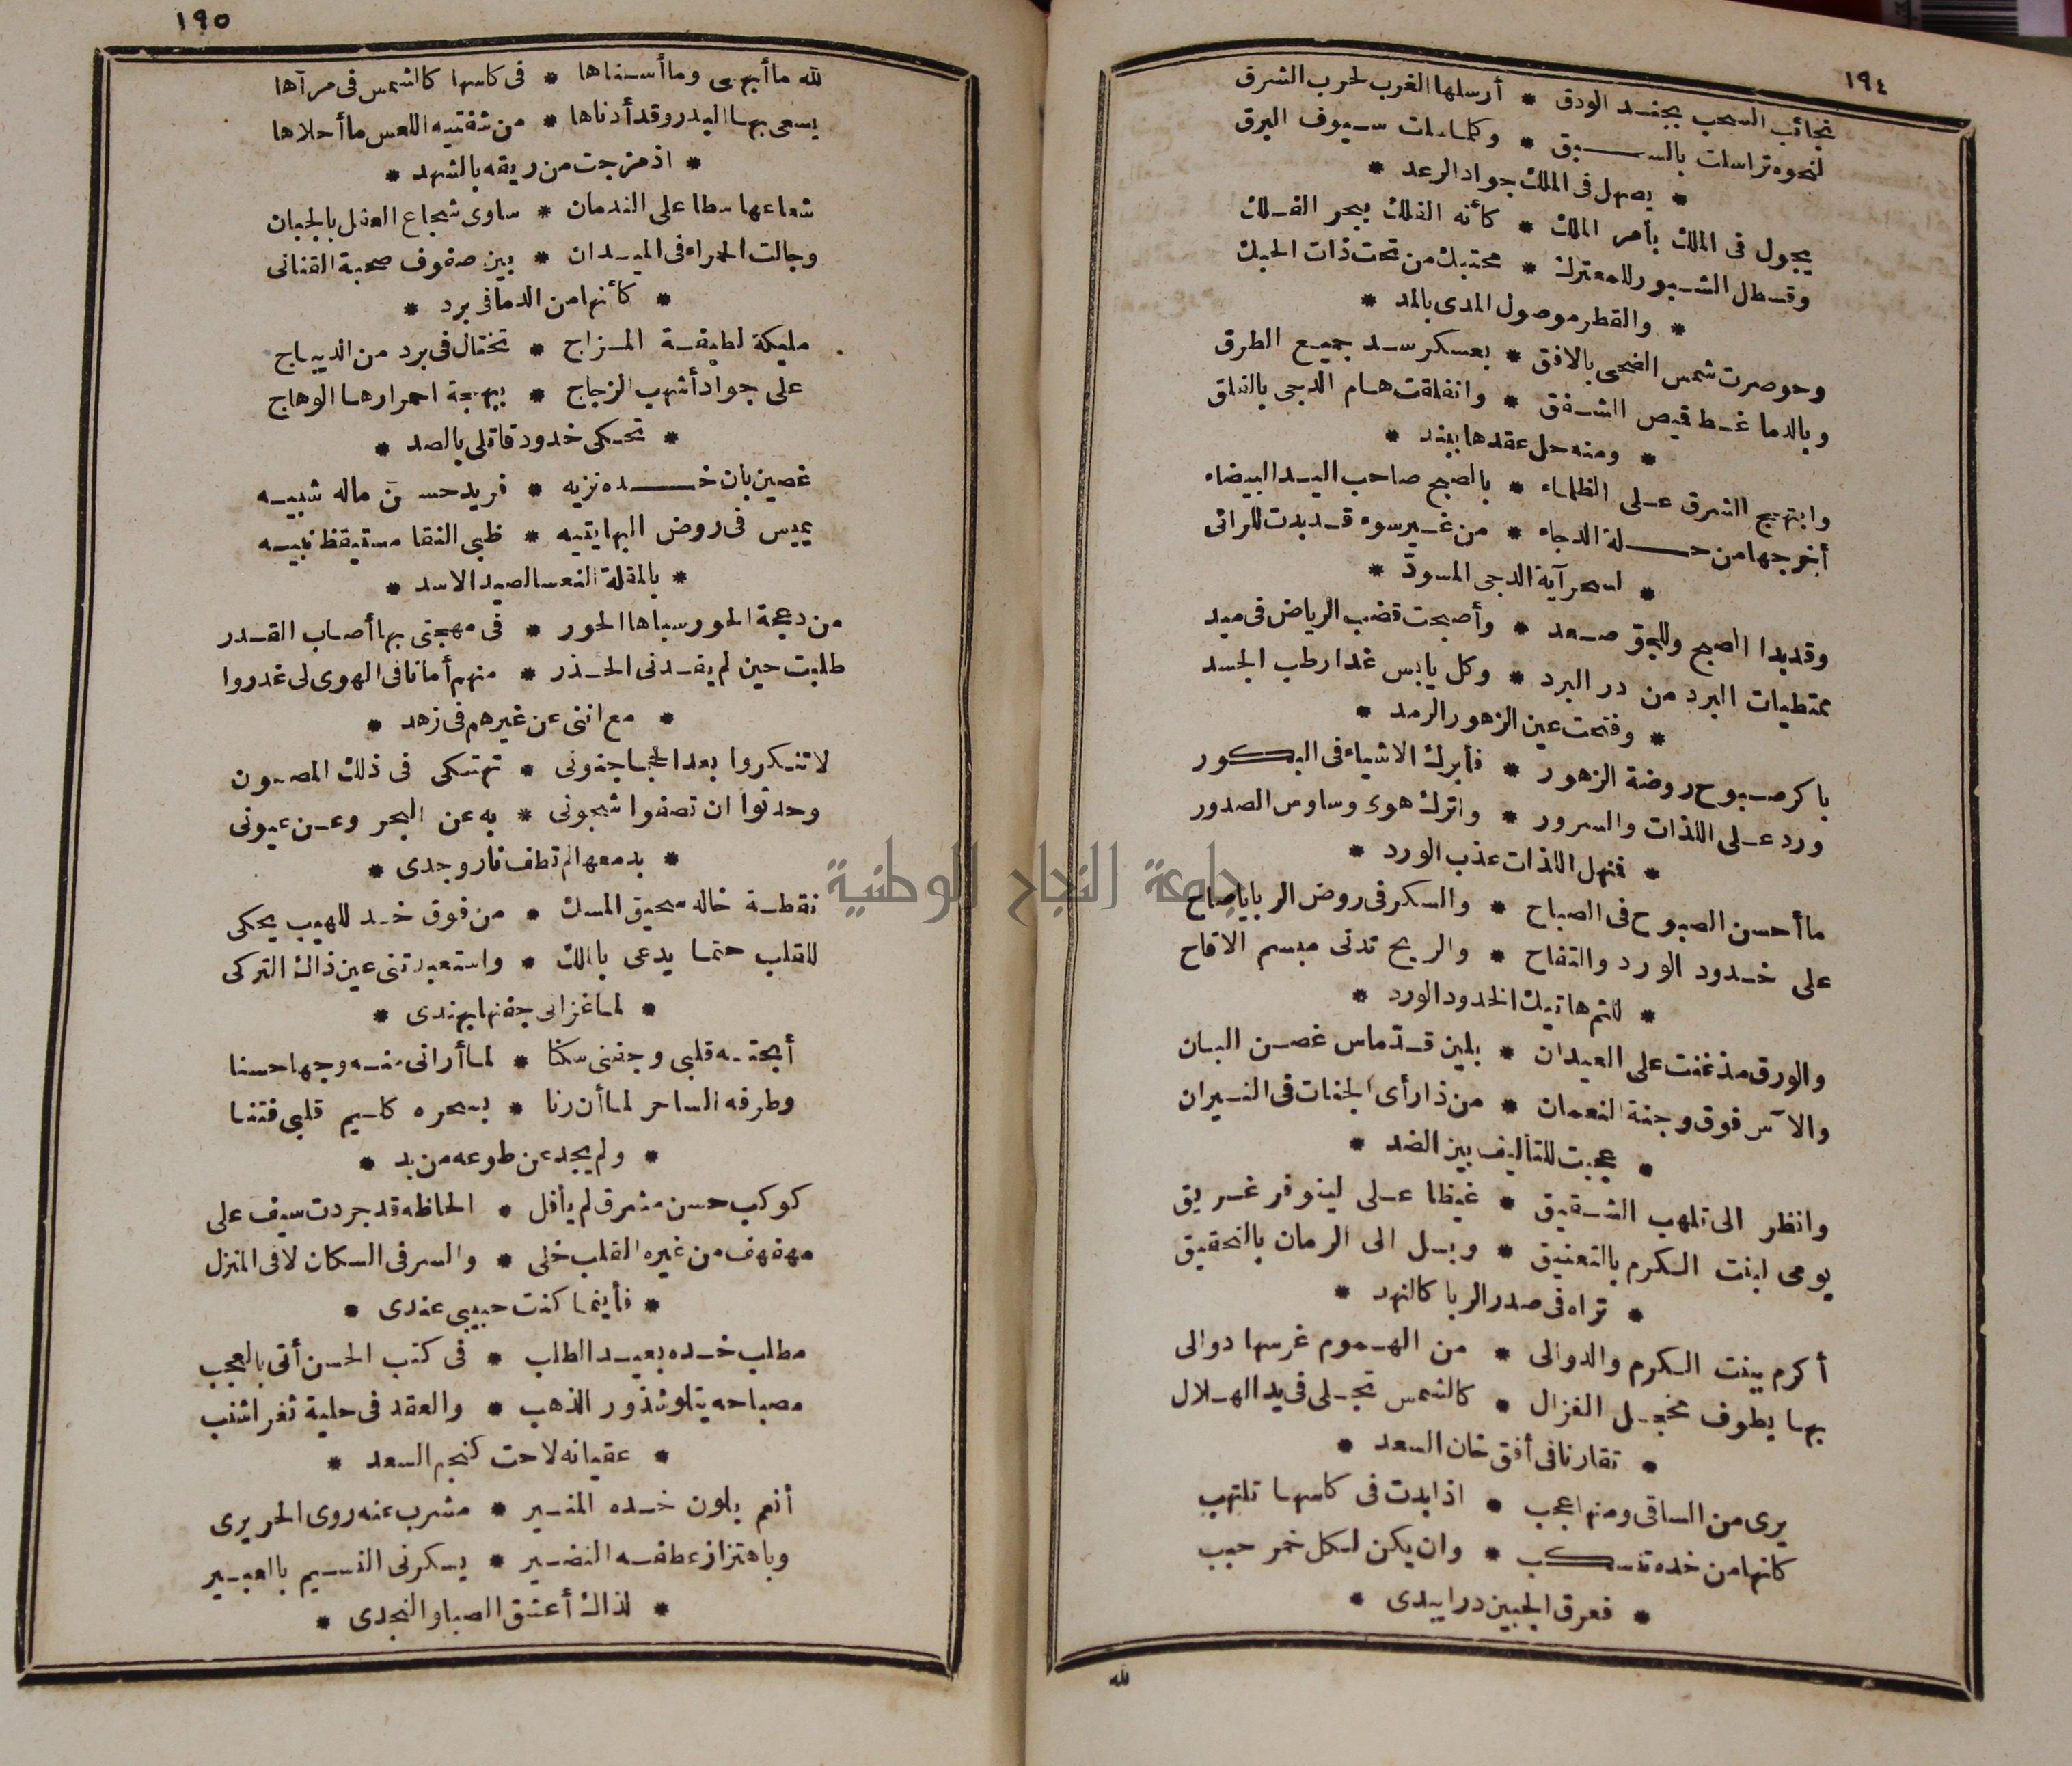 ١٩٤
نجائب السحب بجند الودق * أرسلها الغرب لحرب الشرق
لنحوه تراسلت بالسبق * وكلما سلت سيوف البرق
* يصهل فى الملك جواد الرعد *
يجول فى الملك بأمر الملك * كأنه الفلك ببحر الفلك
وقسطل الثبور للمعترك * محتبك من تحت ذات الحبك
* والقطر موصول المدى بالمد *
وحوصرت شمس الضحى بالافق * بعسكر سد جميع الطرق
وبالدما غط قيص الشفق * وانفلقت هام الدجى بالفلق
* ومنه حل عقدها ببند *
وابتهج الشرق على الظلماء * بالصبح صاحب اليد البيضاء
أخرجها من حلة الدجاء * من غير سوء قد بدت للرائى
* اسحر آية الدجى المسودّ *
وقد بدا الصبح وللجوّ صعد * وأصبحت قضب الرياض فى ميد
ممتطيات البرد من در البرد * وكل يابس غدا رطب الجسد
* وفتحت عين الزهور الرمد *
باكر صبوح روضة الزهور * فأبرك الاشياء فى البكور
ورد على اللذات والسرور * واترك هوى وساوس الصدور
* فنهل اللذات عذب الورد *
ما أحسن الصبوح فى الصباح * والسكر فى روض الربا يا صاح
على خدود الورد والتفاح * والريح تدنى مبسم الاقاح
* للثم هاتيك الخدود الورد *
والورق مذ غنت على العيدان * بلين قدّ ماس غصن البان
والآس فوق وجنة النعمان * من ذا رأى الجنات فى النيران
* عجبت للتأليف بين الضد *
وانظر الى تلهب الشقيق * غيظا على لينوفر غريق
يومى لبنت الكرم بالتعنيق * وبل الى الرمان بالتحقيق
* تراه فى صدر الربا كالنهد *
أكرم ببنت الكرم والدوالى * من الهموم غرسها دوالى
بها يطوف مخجل الغزال * كالشمس تجلى فى يد الهلال
* تقارنا فى أفق خان السعد *
يرى من الساقى ومنها عجب * اذا بدت فى كاسها تلتهب
كانها من خده تنسكب * وان يكن لكل خمر حبب
* فعرق الجبين درا يبدى *
لله
١٩٥
لله ما أبهى وما أسناها * فى كاسها كالشمس فى مرآها
يسعى بها البدر وقد أدناها * من شفتيه اللعس ما أحلاها
* اذ مزجت من ريقه بالشهد *
شعاعها سطا على الندمان * ساوى شجاع العقل بالجبان
وجالت الحمراء فى الميدان * بين صفوف صحبة القنانى
* كأنها من الدما فى برد *
مليكة لطيفة المزاج * تختال فى برد من الديباج
على جواد أشهب الزجاج * ببهجة احمرارها الوهاج
* تحكى خدود قاتلى بالصد *
غصين بان خده نزيه * فريد حسن ماله شبيه
يميس فى روض البها يتيه * ظبي النقا مستيقظ نبيه
* بالمقلة النعسا لصيد الاسد *
من دعجة الحور سباها الحور * فى مهجتى بها أصاب القدر
طلبت حين لم يفدنى الحذر * منهم أمانا فى الهوى لى غدروا
* مع اننى عن غيرهم فى زهد *
لا تنكروا بعد الحجا جنونى * تهتكى فى ذلك المصون
وحدثوا ان تصفوا شجونى * به عن البحر وعن عيونى
* بدمعها لم تطف نار وجدى *
نقطة خاله سحيق المسك * من فوق خد للهيب يحكى
للقلب حتما يدعى بالملك * واستعبدتنى عين ذاك التركى
* لما غزانى جفنها بهندى *
أبحته قلبى وجفنى سكنا * لما أرانى منه وجها حسنا
وطرفه الساحر لما أن رنا * بسحره كليم قلبى فتنا
* ولم يجد عن طوعه من بد *
كوكب حسن مشرق لم يأفل * الحاظه قد جردت سيف على
مهفهف من غيره القلب خلى * والسر فى السكان لا فى المنزل
* فأينما كنت حبيبى عندى *
مطلب خده بعيد الطلب * فى كتب الحسن أتى بالعجب
مصباحه يتلو شذور الذهب * والعقد فى حلية ثغر اشنب
* عقيانه لاحت كنجم السعد *
أنعم بلون خده المنير * مشرب عنه روى الحريرى
وباهتزاز عطفه النضير * يسكرنى النسيم بالعبير
* لذاك أعشق الصبا والنجدى *
جامعة النجاح الوطنية